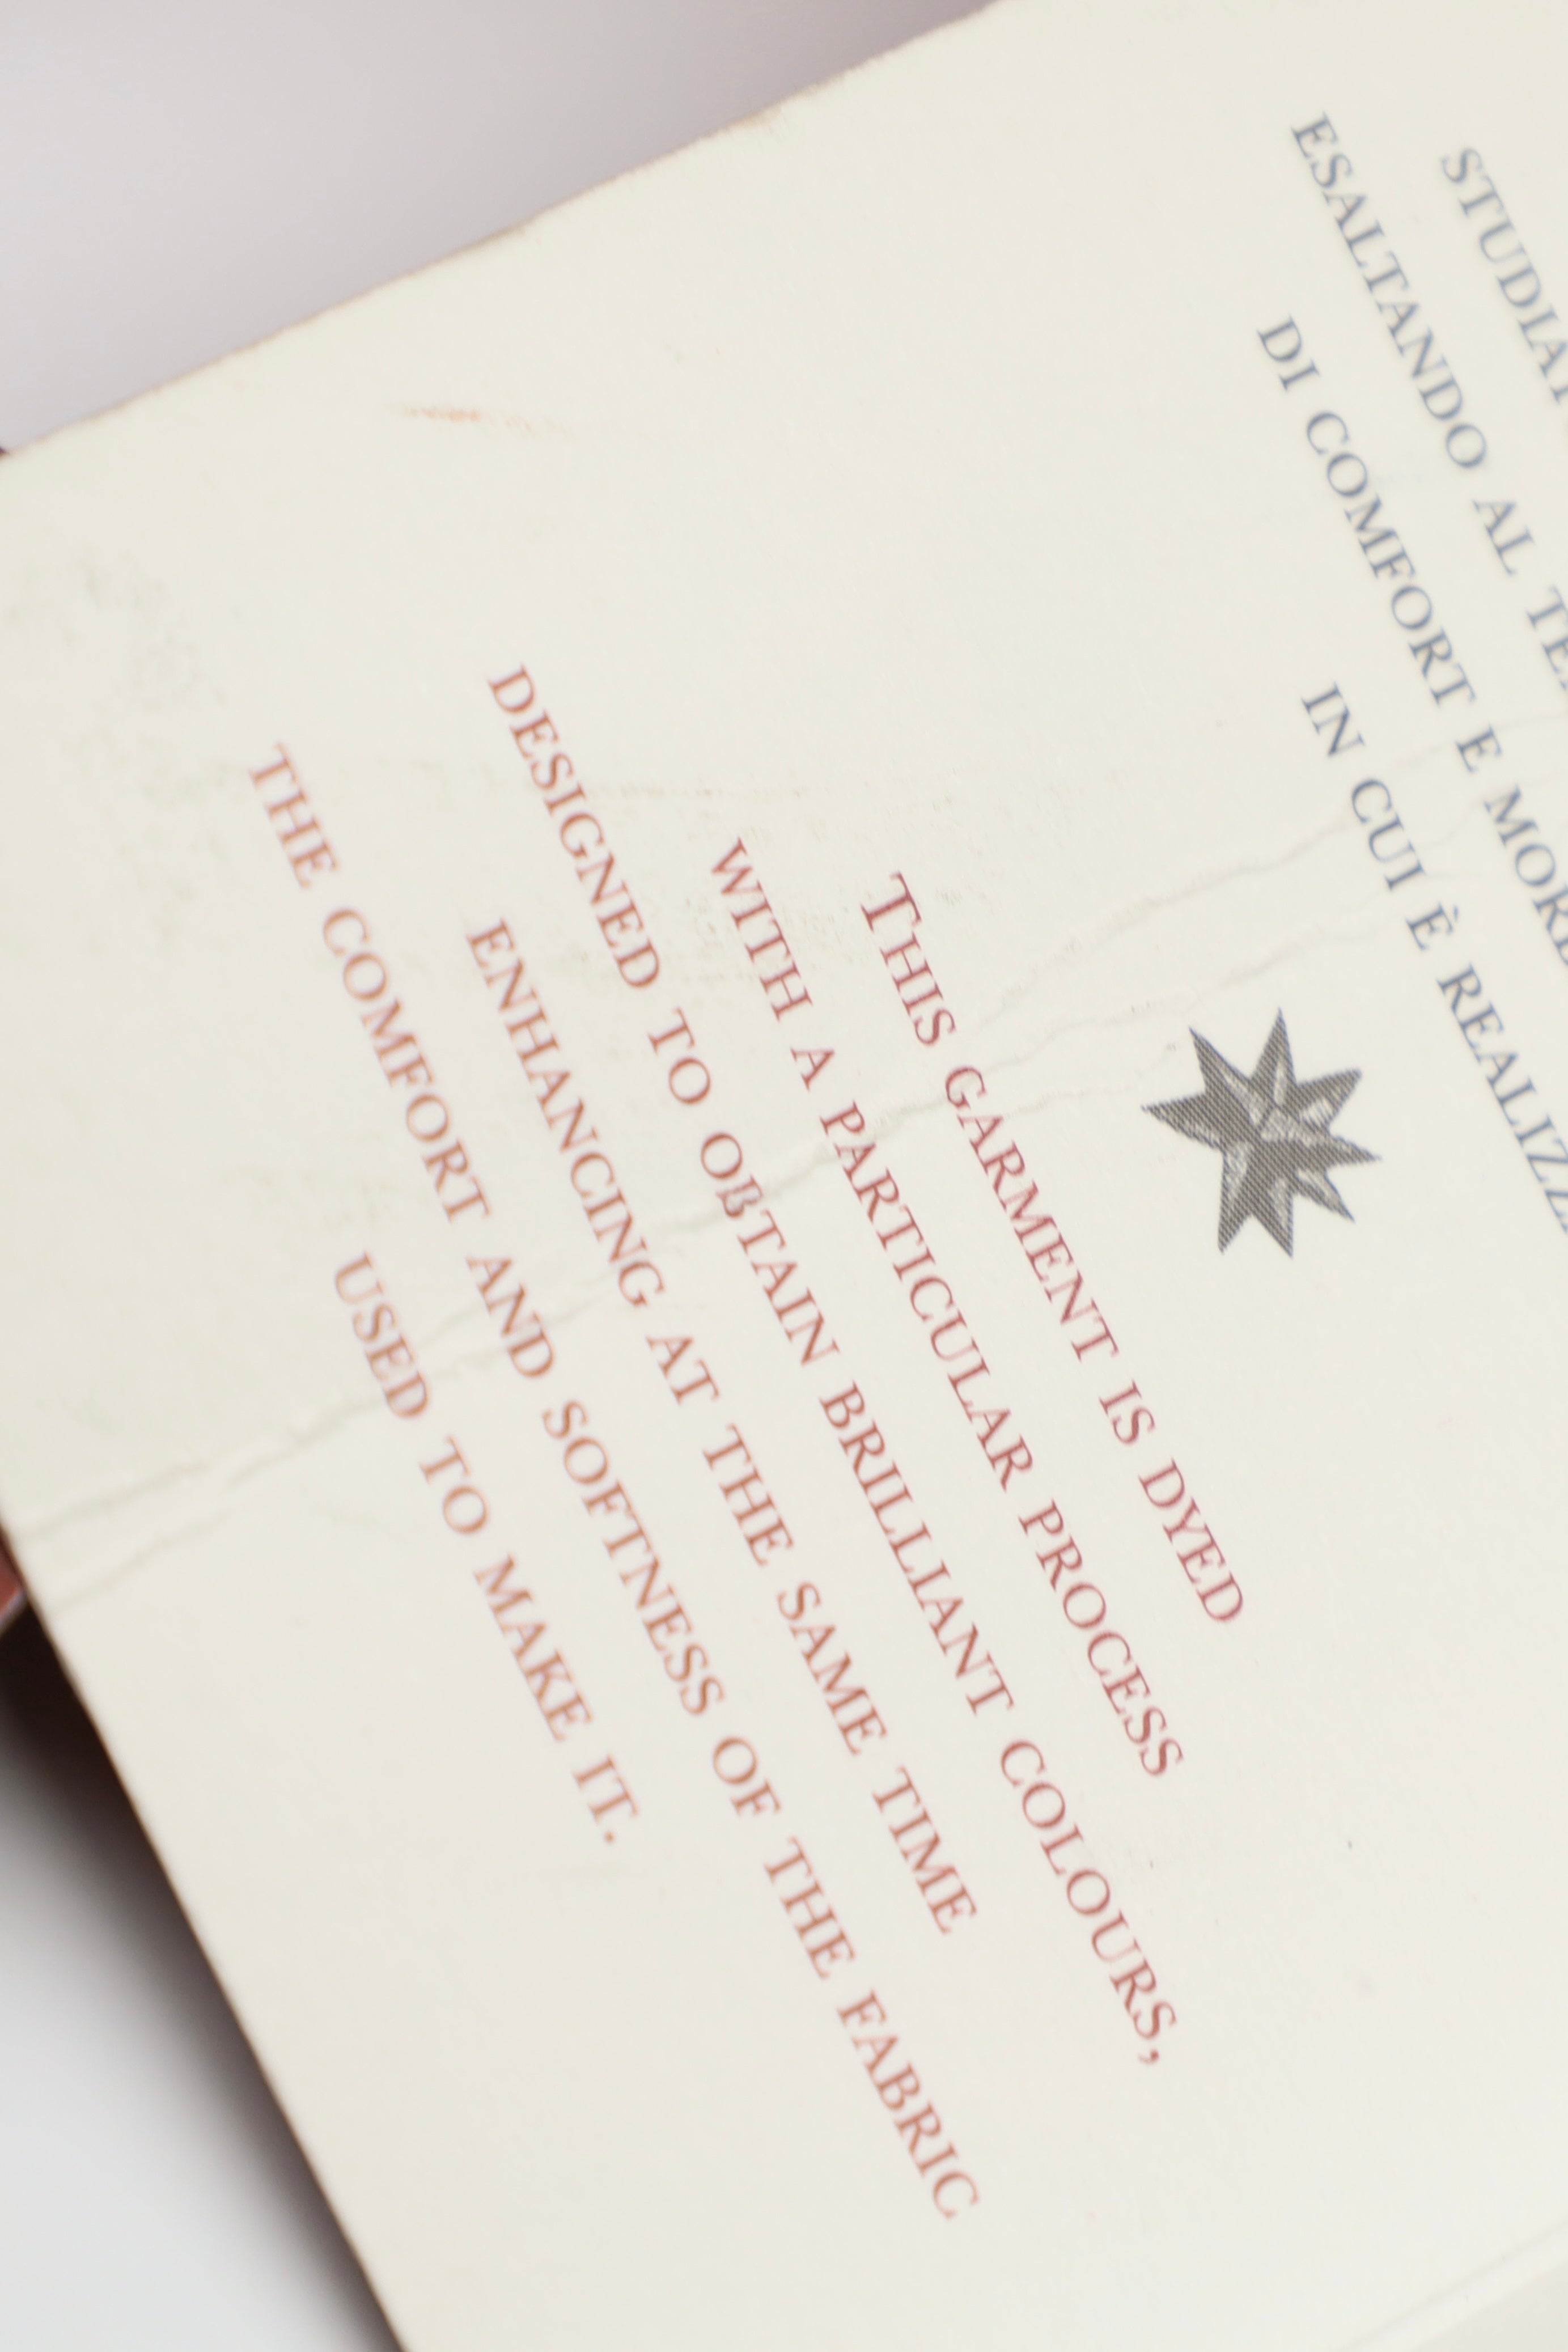 ESALTANDO AL
DI COMFORT E
IN CUI È
THIS GARMENT IS DYED
WITH A PARTICULAR PROCESS
DESIGNED TO OBTAIN BRILLIANT COLOURS,
ENHANCING AT THE SAME TIME
THE COMFORT AND SOFTNESS OF THE FABRIC
USED TO MAKE IT.